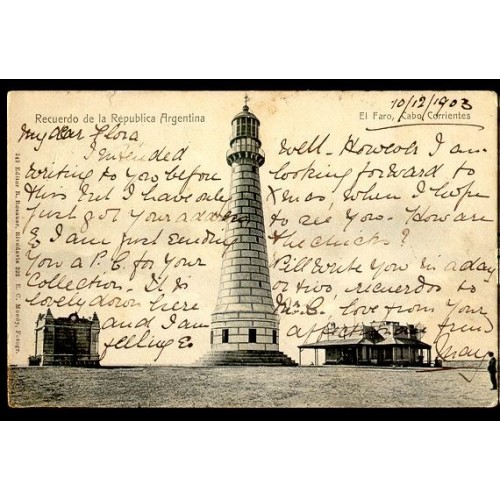 Recuerdo de la República Argentina
El Faro, Cabo Corrientes
10/12/1903
142 Editor R. Rosauer, Rivadavia 222 E. C. Moody, Fotogr.
My dear Flora
I intended
writing to you before
this but I have only
just got your address
& I am just sending
you a P.C. for your
Collection. It is
lovely down here
and I am
feeling so
well. However I am
looking forward to
Xmas, when I hope
to see you. How are
the chicks?
I'll write you in a day
or two, recuerdos to
love from your
affectionate friend